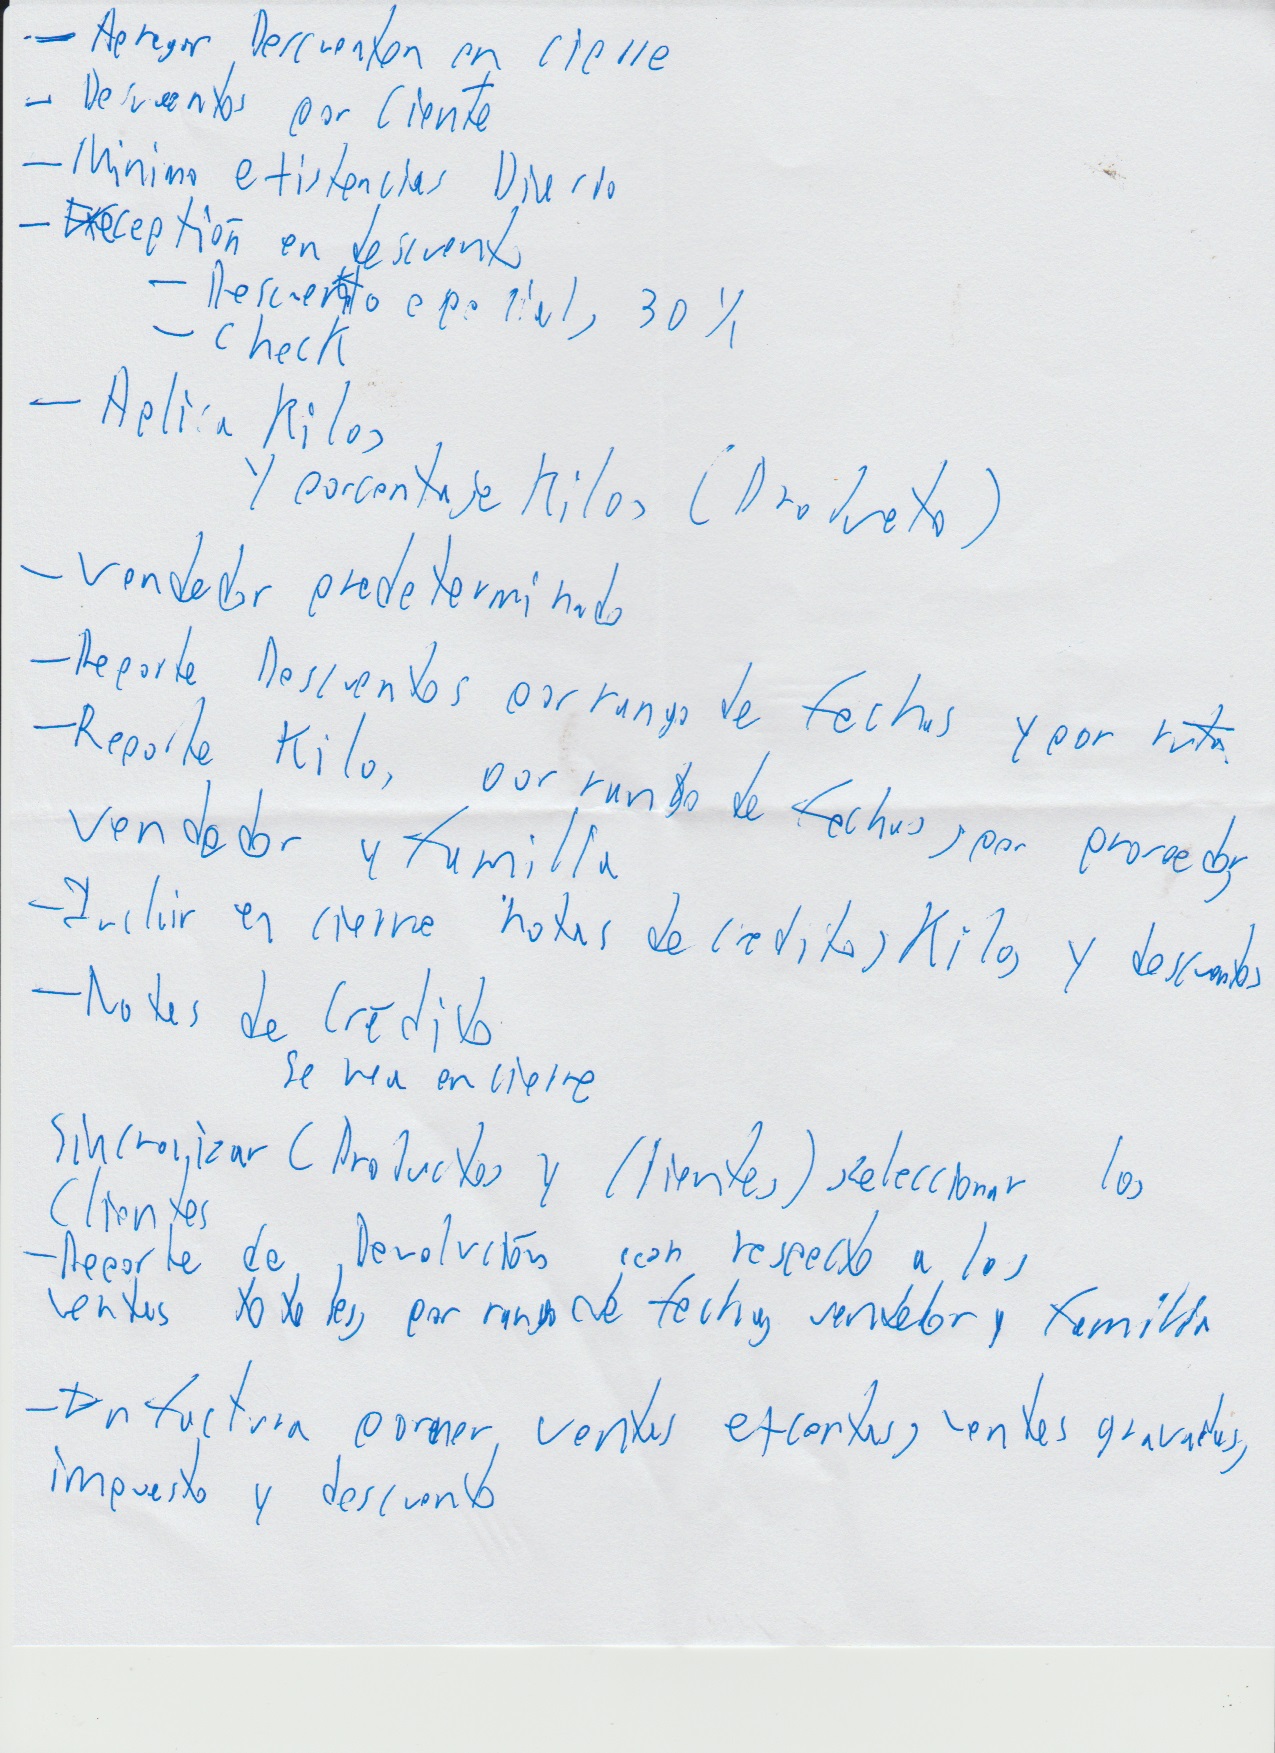 - Agregar Descuenton en cierre
- Descuentos por Ciente
- Minimo existencias Diario
- Exception en descuento
- Descuento epecial, 30%
- Check
- Aplica Kilos
Y porcentaje Kilos (Producto)
- Vendedor predeterminado
- Reporte Descuentos por rango de fechas y por ruta
- Reporte Kilos, por rango de fechas, por proveedor,
vendedor y familia
- Incluir en cierre notas de credito, Kilos y descuentos
- Notas de Crédito
Se vea en cierre
Sincronizar (Productos y Clientes) seleccionar los
Clientes
- Reporte de Devolución con respecto a los
ventas totales, por rango de fechas, vendedor y familia
- En factura poner, ventas excentas, ventas gravadas,
impuesto y descuento